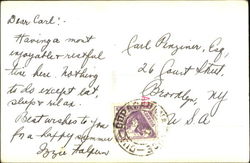 Dear Carl:-
Having a most
enjoyable & restful
time here. Nothing
to do except eat,
sleep & relax.
Best wishes to you
for a happy summer
Izzie Halpern
Carl Penziner, Esq
26 Court Street,
Brooklyn, NY
U S A